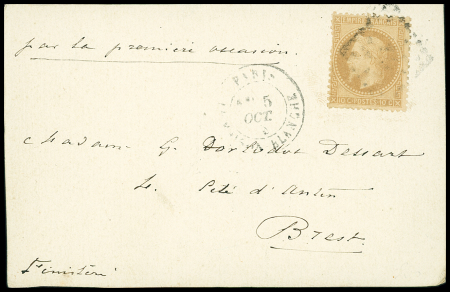 par la première occasion.
EMPIRE FRANC
10 C POSTES 10 C
PARIS
5
OCT.
Madame G. Dorlodot Dessart
4, Cité d'Antin
Brest
Finistère